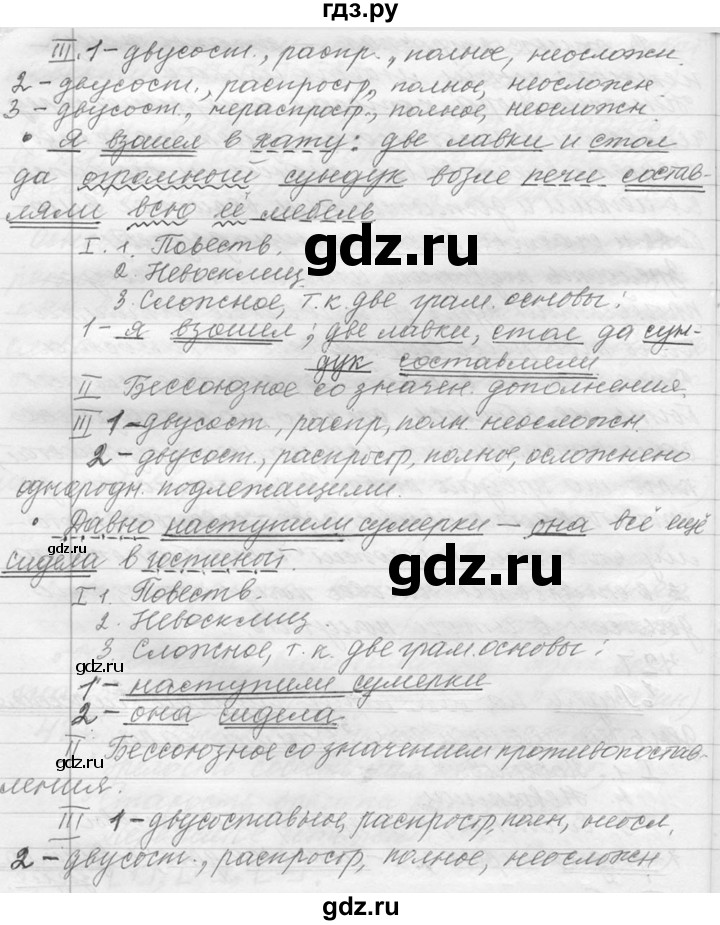 гдз.ру
III. 1 – двусост., распр., полное, неосложн.
2 – двусост., распростр, полное, неосложн.
3 – двусост., нераспростр., полное, неосложн.
• Я взошел в хату: две лавки и стол
да огромный сундук возле печи состав-
ляли всю её мебель
I. 1. Повеств.
2. Невосклиц.
gdz.ru
3. Сложное, т.к. две грам. основы:
1 – я взошел; две лавки, стол да сун-
дук составляли
II Бессоюзное со значен. дополнения.
III 1 – двусост, распр, полн. неосложн.
2 – двусост., распростр, полное, осложнено
однородн. подлежащими.
• Давно наступили сумерки – она всё ещё
gdz.ru
сидела в гостиной.
gdz.ru
I 1. Повеств.
2. Невосклиц.
3. Сложное, т.к. две грам. основы:
gdz.ru
1 – наступили сумерки
2 – она сидела.
II Бессоюзное со значением противопостав-
gdz.ru
gdz.ru
ления.
III 1 – двусоставное, распростр, полн, неосл.
2 – двусост., распростр, полное, неосложн
gdz.ru